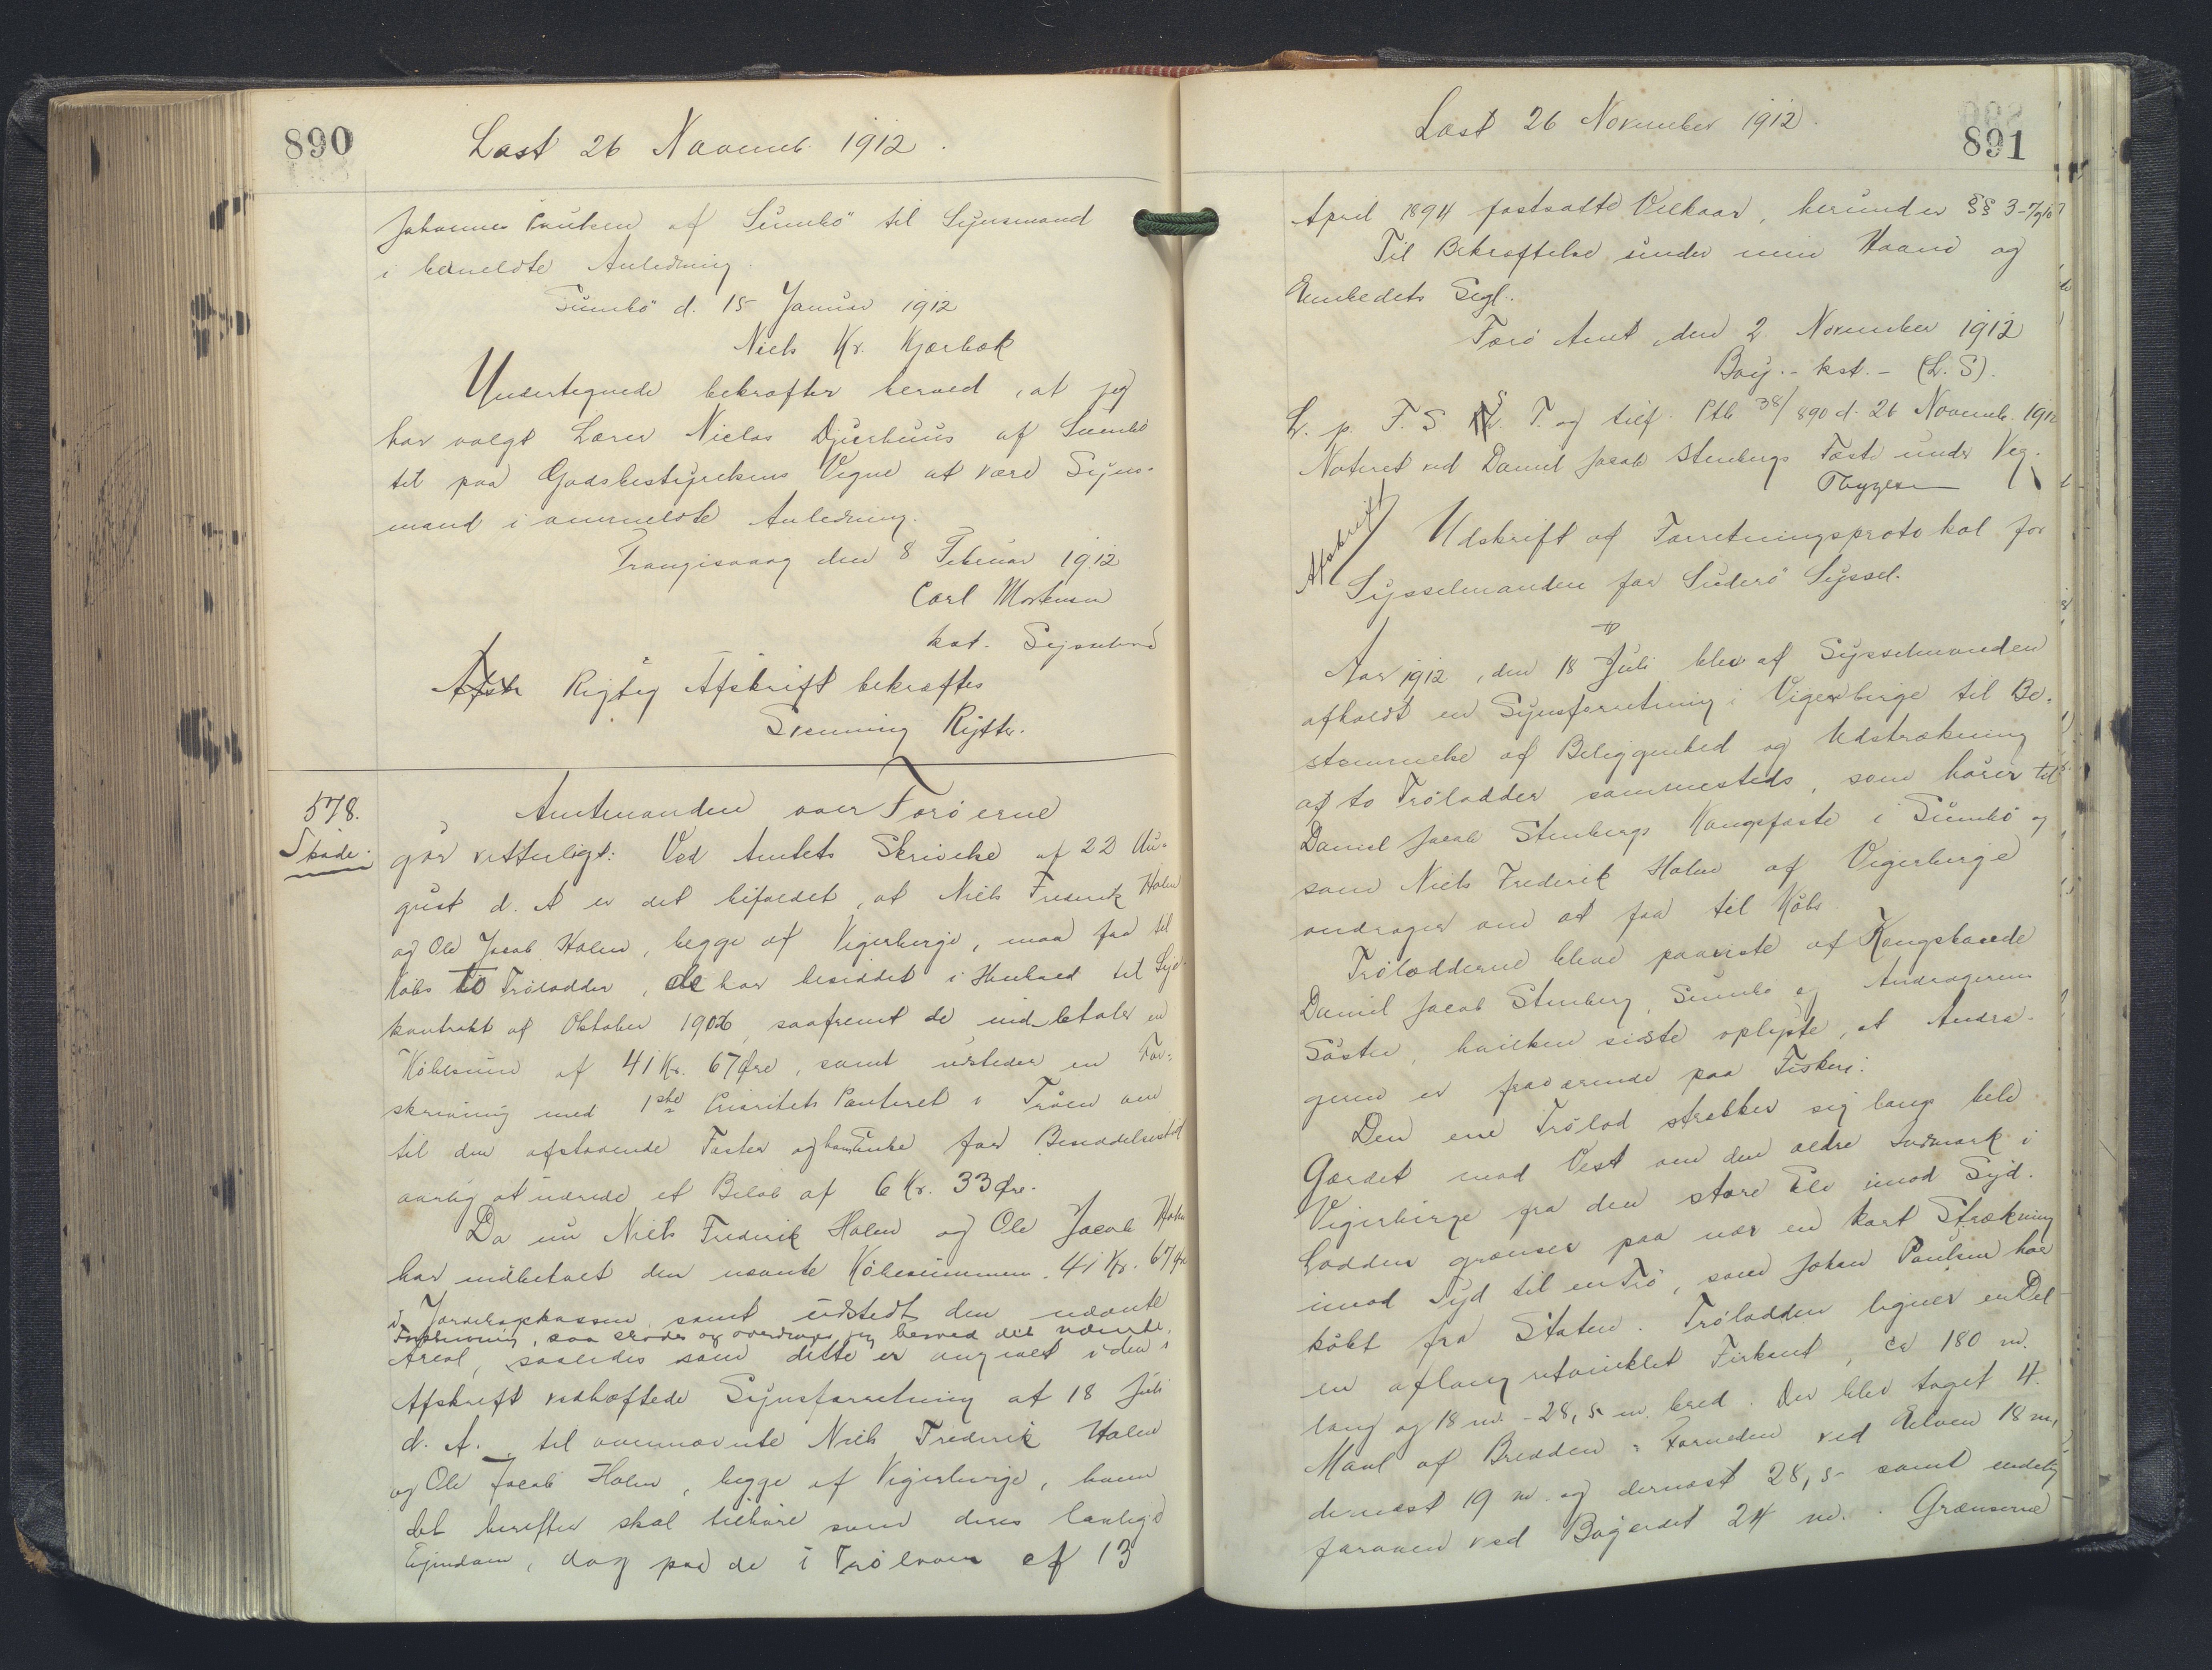 890
Læst 26 Novemb. 1912.
Johannes Poulsen af Sumbö til Synsmand
i bemeldte Anledning.
Sumbö d. 15 Januar 1912
Niels Kr. Kjærbæk
Undertegnede bekræfter herved, at jeg
har valgt Lærer Niclas Djurhuus af Sumbö
til paa Godsbestyrelsens Vegne at være Syns-
mand i ommeldte Anledning.
Trangisvaag den 8 Februar 1912
Carl Mortensen
kst. Sysselmd
Rigtig Afskrift bekræftes
Svenning Rytter.
578.
Skøde.
Amtmanden over Færöerne
gör vitterligt: Ved Amtets Skrivelse af 22 Au-
gust d. A er det bifaldet, at Niels Frederik Holm
og Ole Jacob Holm, begge af Vigerbirge, maa faa til
Købs to Trölodder, de har besiddet i Henhold til Leje
kontrakt af Oktober 1906, saafremt de indbetaler en
Købesum af 41 Kr. 67 Øre, samt udsteder en For-
skrivning med 1ste Prioritets Panteret i Tröen om
til den afstaaende Fæster og hans Enke for Besiddelsestid
aarlig at udrede et Beløb af 6 Kr. 33 Øre.
Da nu Niels Frederik Holm og Ole Jacob Holm
har indbetalt den nævnte Købesummen 41 Kr. 67 Øre
i Jordebogskassen samt udstedt den nævnte
Forskrivning, saa skøder og overdrages jeg herved det nævnte
Areal, saaledes som dette er angivet i den i
Afskrift vedhæftede Synsforretning af 18 Juli
d. A., til ovennævnte Niels Frederik Holm
og Ole Jacob Holm, begge af Vigerbirge, hvem
det herefter skal tilhøre som deres lovlige
Ejendom, dog paa de i Trøloven af 13
Læst 26 November 1912.
891
April 1894 fastsatte Vilkaar, herunder §§ 3-7/9 10
Til Bekræftelse under min Haand og
Embedets Segl.
Færö Amt, den 2 November 1912
Bay.- kst.- (L. S).
L. p. F. S T. og tilf. Ptb 38/890 d. 26 Novemb. 1912
Noteret ved Daniel Jacob Stenbergs Fæste under Veg.
Thygesen
Afskrift
Udskrift af Forretningsprotokol for
Sysselmanden for Suderö Syssel.
Aar 1912, den 18 Juli blev af Sysselmanden
afholdt en Synsforretning i Vigerbirge til Be-
stemmelse af Beliggenhed og Udstrækning
af to Trölodder sammesteds, som hører til
Daniel Jacob Stenbergs Kongsfæste i Sumbö og
som Niels Frederik Holm af Vigerbirge
andrager om at faa til Købs.
Trölodderne bleve paaviste af Kongsbonde
Daniel Jacob Stenberg, Sumbö og Andragerens
Söster, hvilken sidste oplyste, at Andra-
geren er fraværende paa Fiskeri.
Den ene Trölod strækker sig langs hele
Gærdet mod Vest om den ældre Indmark i
Vigerbirge fra den store Elv imod Syd.
Lodden grænser paa nær en kort Strækning
imod Syd til en Trö, som Johan Poulsen har
købt fra Staten. Trölodden ligner en Del
en aflang retvinklet Firkant, ca 180 m.
lang og 18 m. - 28,5 m. bred. Der blev taget 4
Maal af Bredden: Forneden ved Elven 18 m,
dernæst 19 m. og dernæst 28,5 samt endelig
foroven ved Bøgerdet 24 m. Grænserne